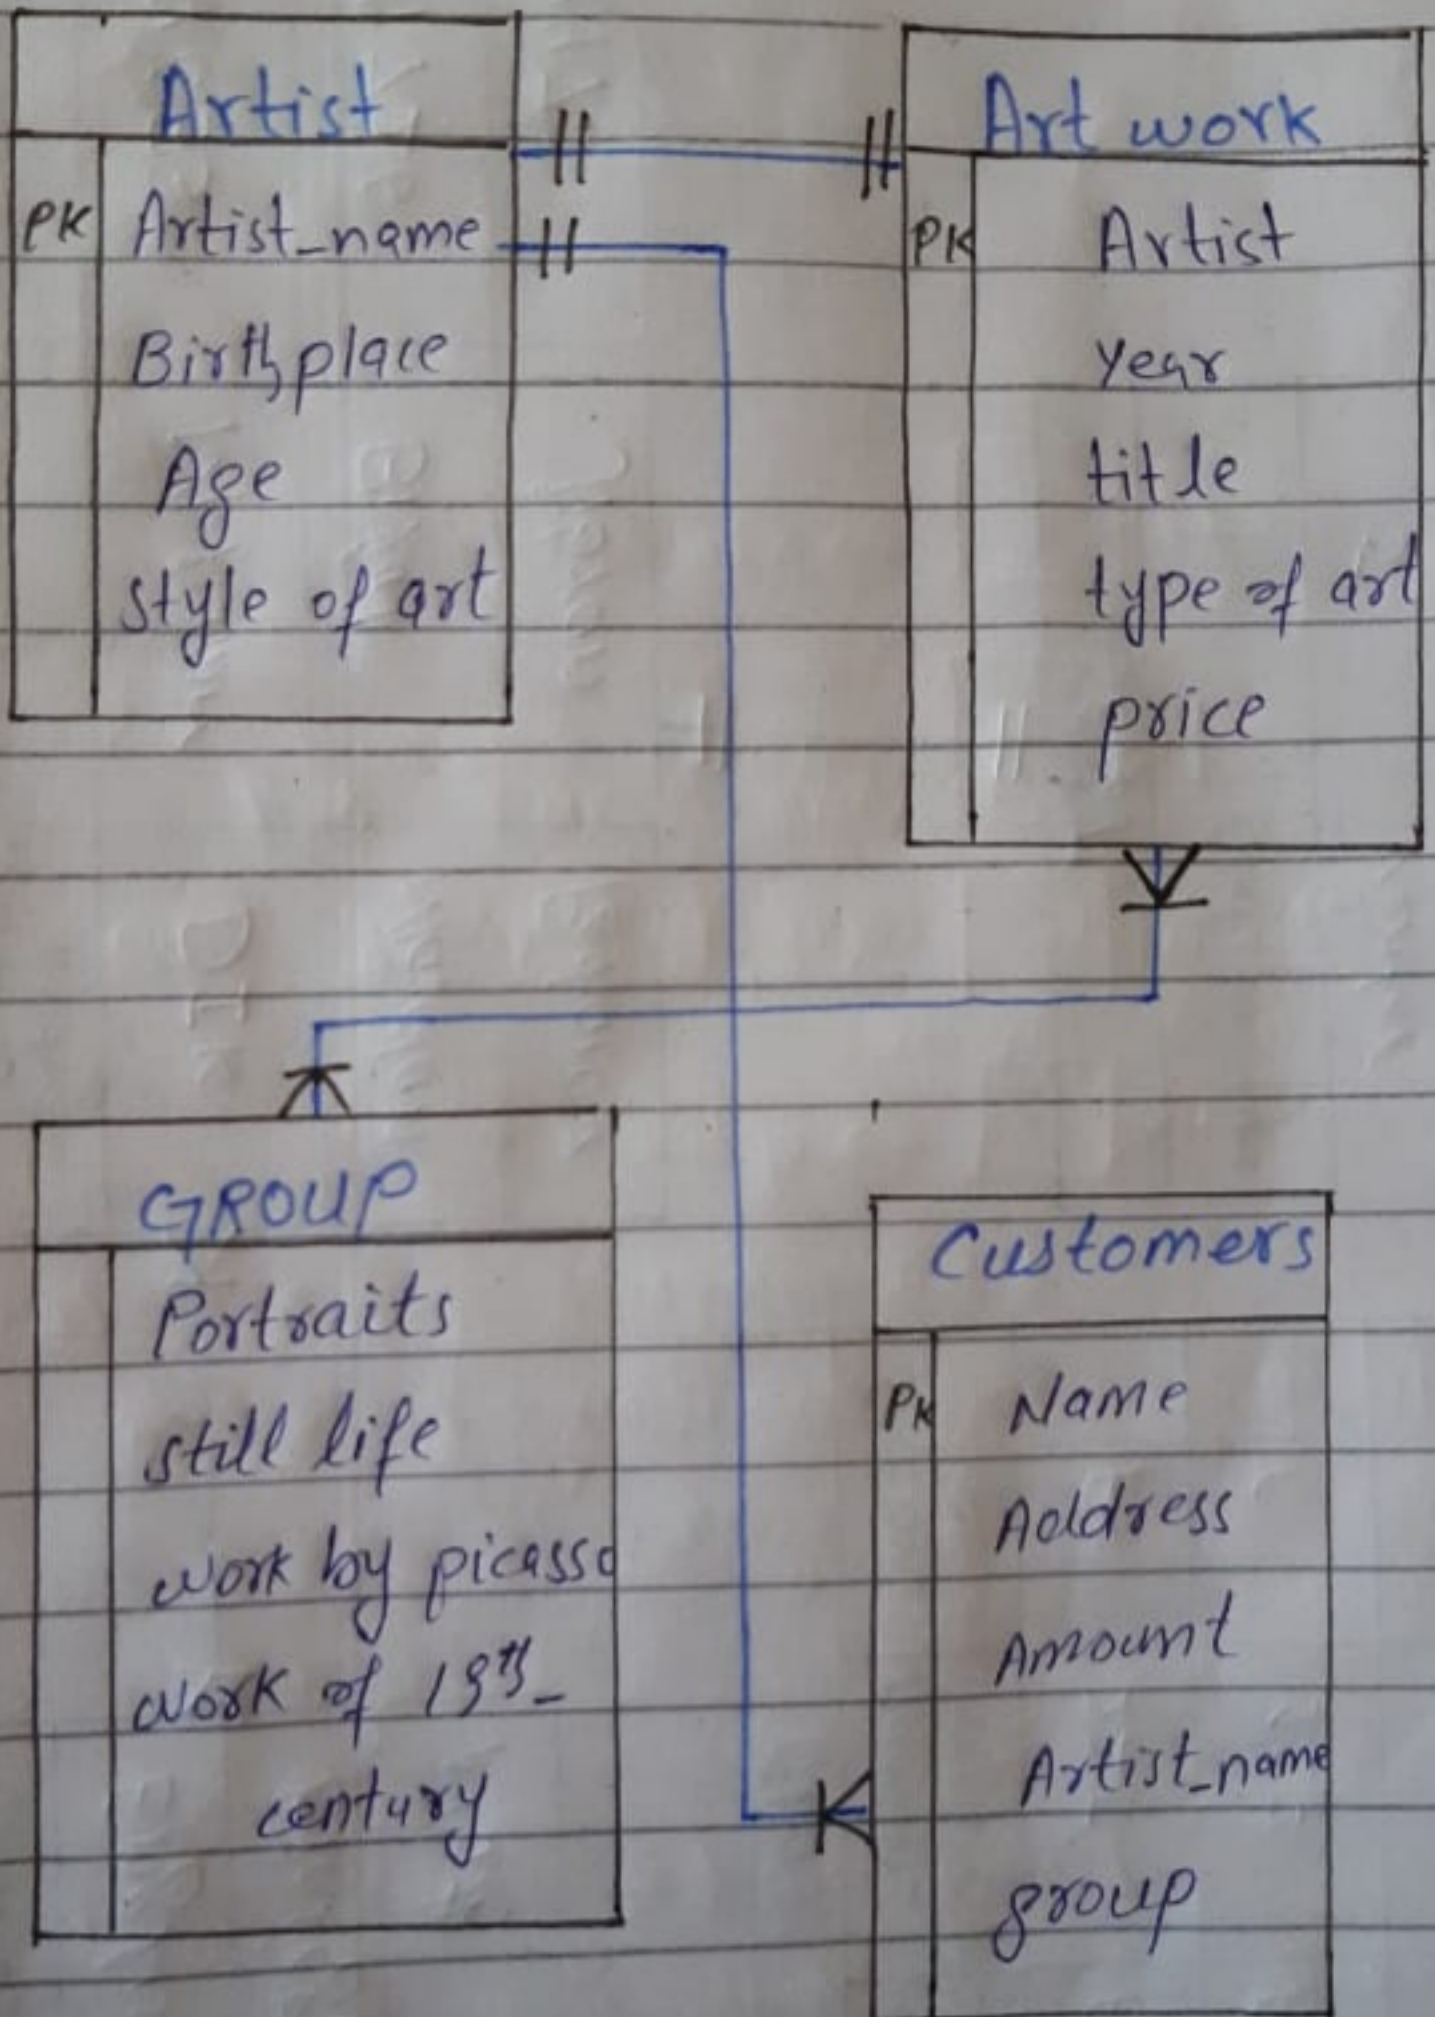 Artist
PK Artist_name
Birthplace
Age
style of art
Art work
PK Artist
year
title
type of art
price
GROUP
Portraits
still life
work by picasso
work of 19th_
century
Customers
PK Name
Address
Amount
Artist_name
group